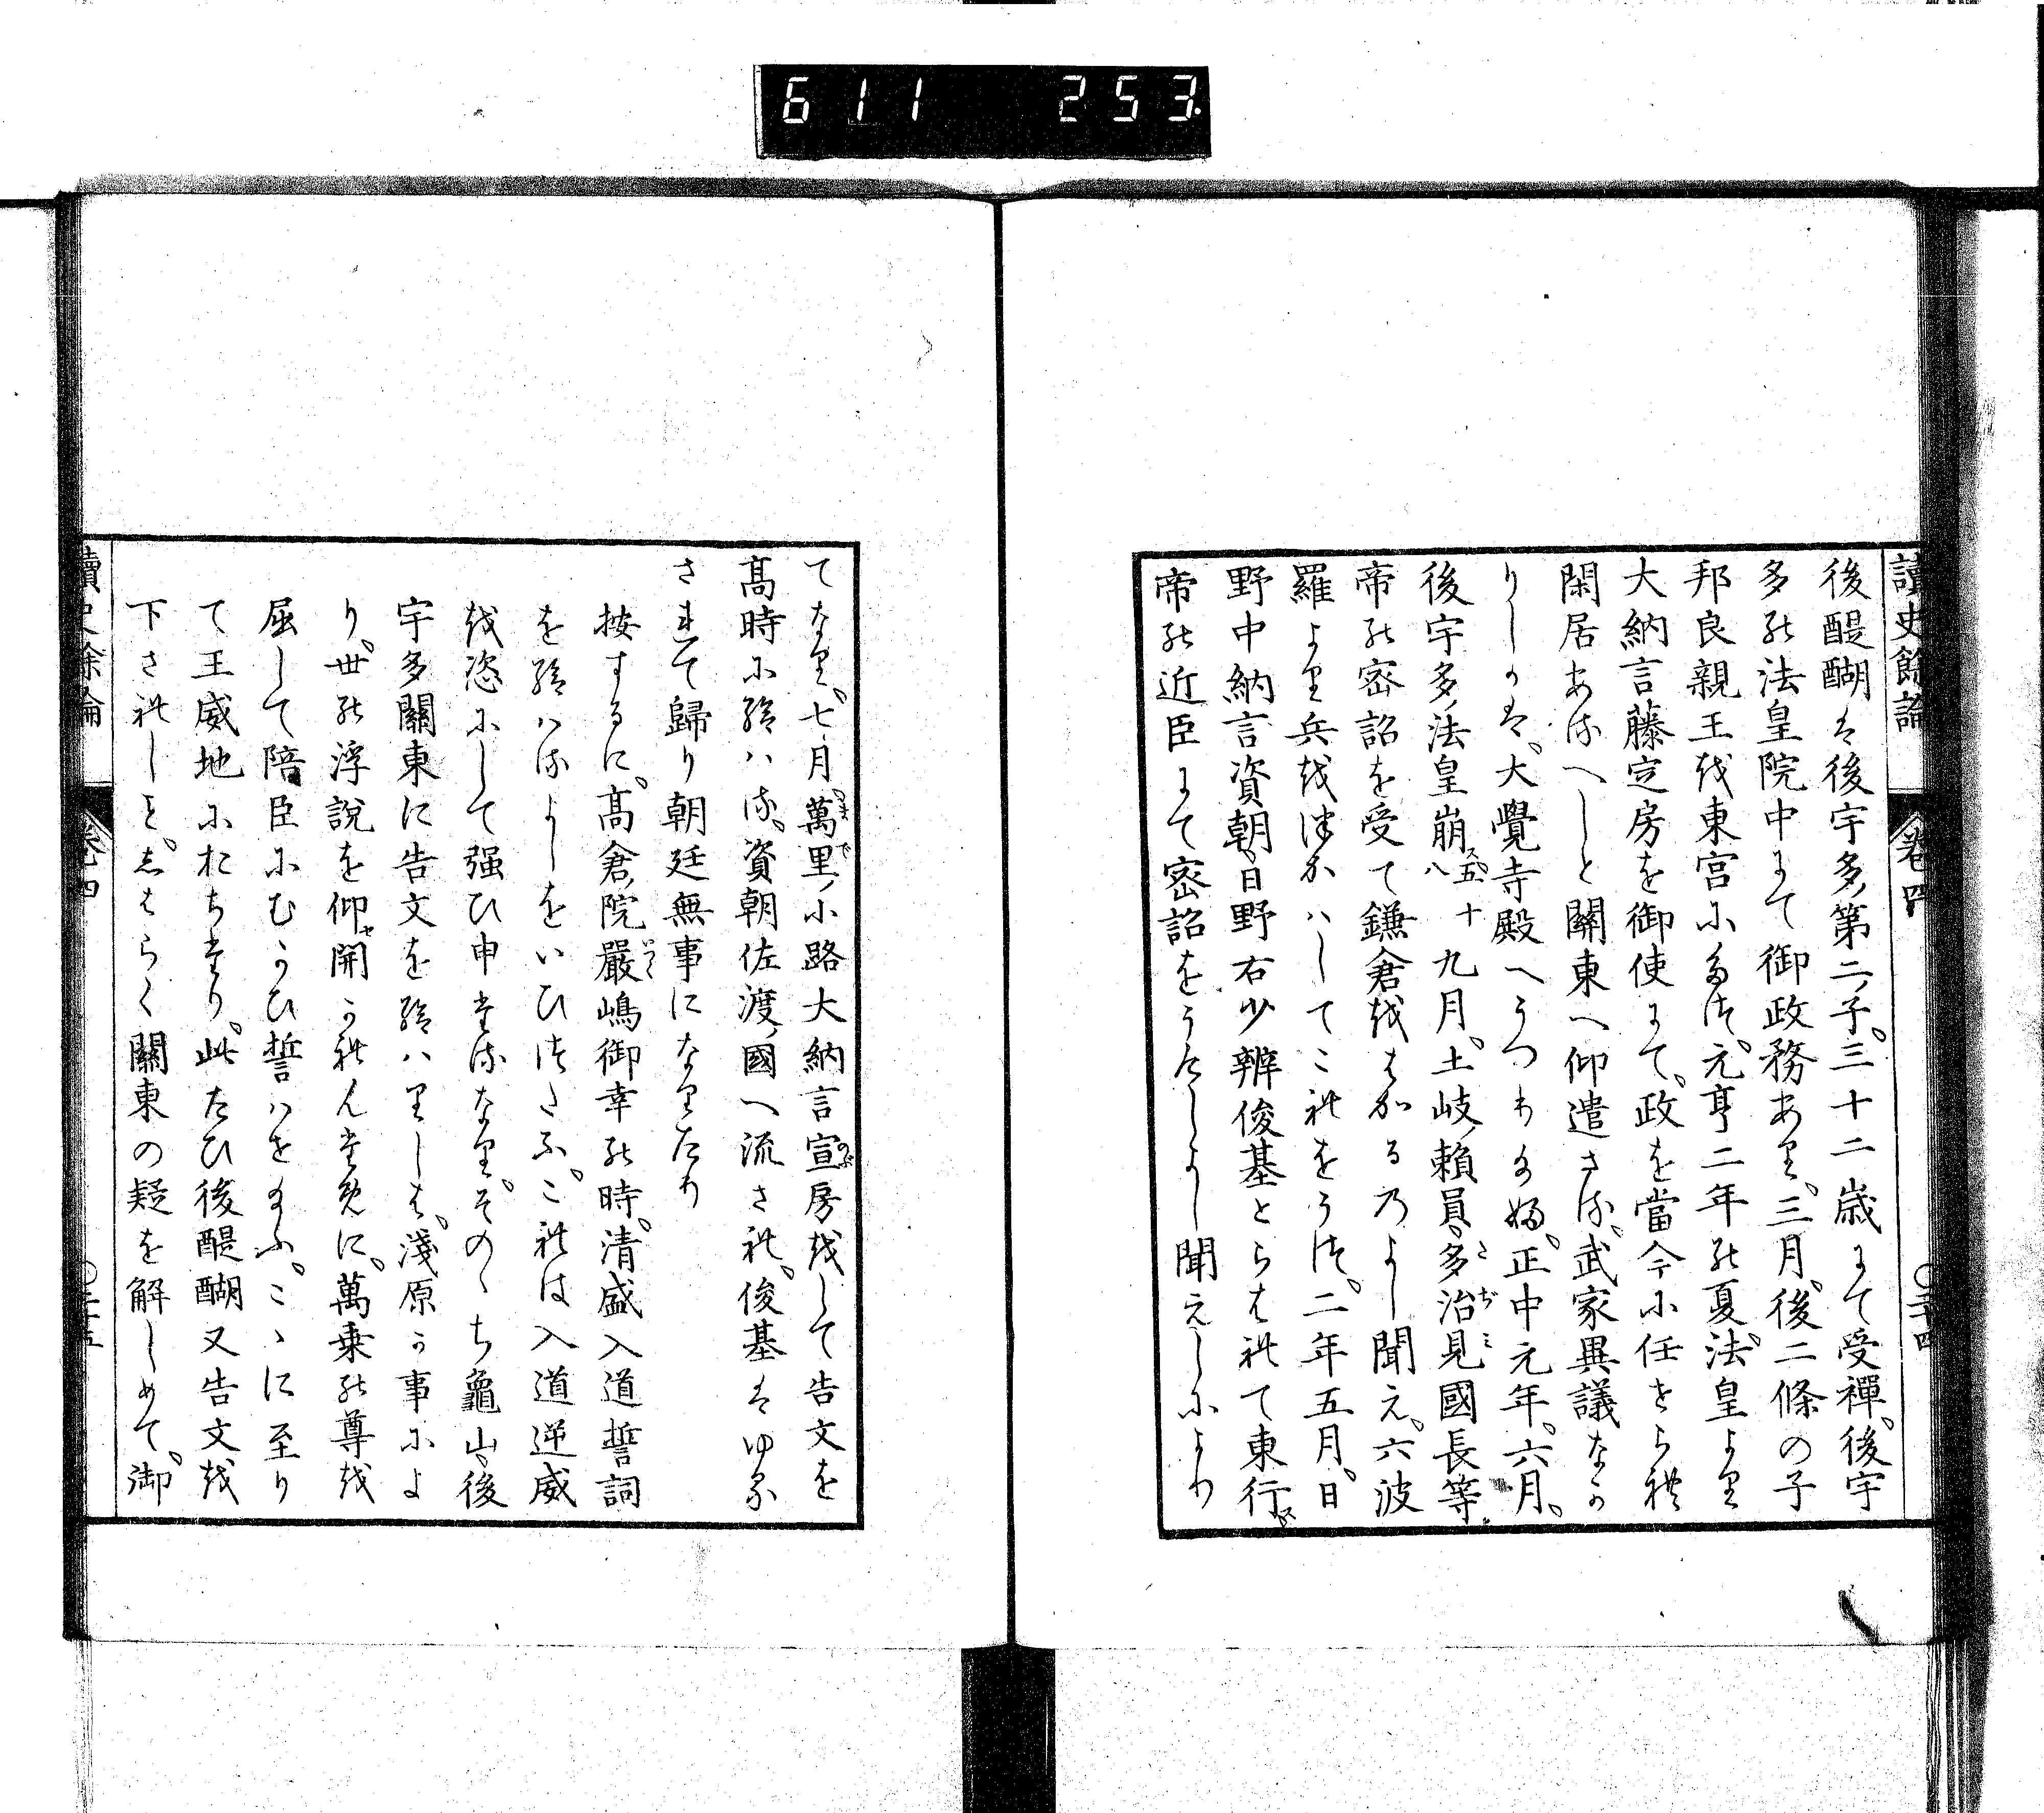 611 253
讀史餘論 卷四 ○二十四
後醍醐は後宇多ノ第二ノ子。三十二歳にて受禪。後宇
多の法皇院中にて御政務あり。三月。後二條の子
邦良親王を東宮に立つ。元亨二年の夏。法皇より
大納言藤定房を御使にて。政を當今に任せられ
閑居あるへしと關東へ仰遣さる。武家異議なか
りしかは。大覺寺殿へうつり給ぬ。正中元年。六月。
後宇多ノ法皇崩五十八九月。土岐ノ賴員。多治見國長等。
帝の密詔を受て鎌倉をはかるのよし聞え。六波
羅より兵をつかはしてこれをうつ。二年五月。日
野中納言資朝。日野右少辨俊基とらはれて東行
帝の近臣にて密詔をうたしよし聞えしによつ
てなり。七月。萬里ノ小路大納言宣房をして告文を
高時に給はる。資朝佐渡ノ國へ流され。俊基はゆる
されて歸り朝廷無事になりたり
按するに。高倉ノ院嚴嶋御幸の時。清盛入道誓詞
を給はるよしをいひつたふ。これは入道逆威
を恣にして强ひ申たるなり。そのゝち龜山。後
宇多關東に告文を給はりしは。淺原か事によ
り。世の浮說を仰開かれんために。萬乘の尊を
屈して陪臣にむかひ誓はせ給ふ。こゝに至り
て王威地におちたり。此たひ後醍醐又告文を
下されしも。しはらく關東の疑を解しめて。御
讀史餘論 卷四 ○二十五